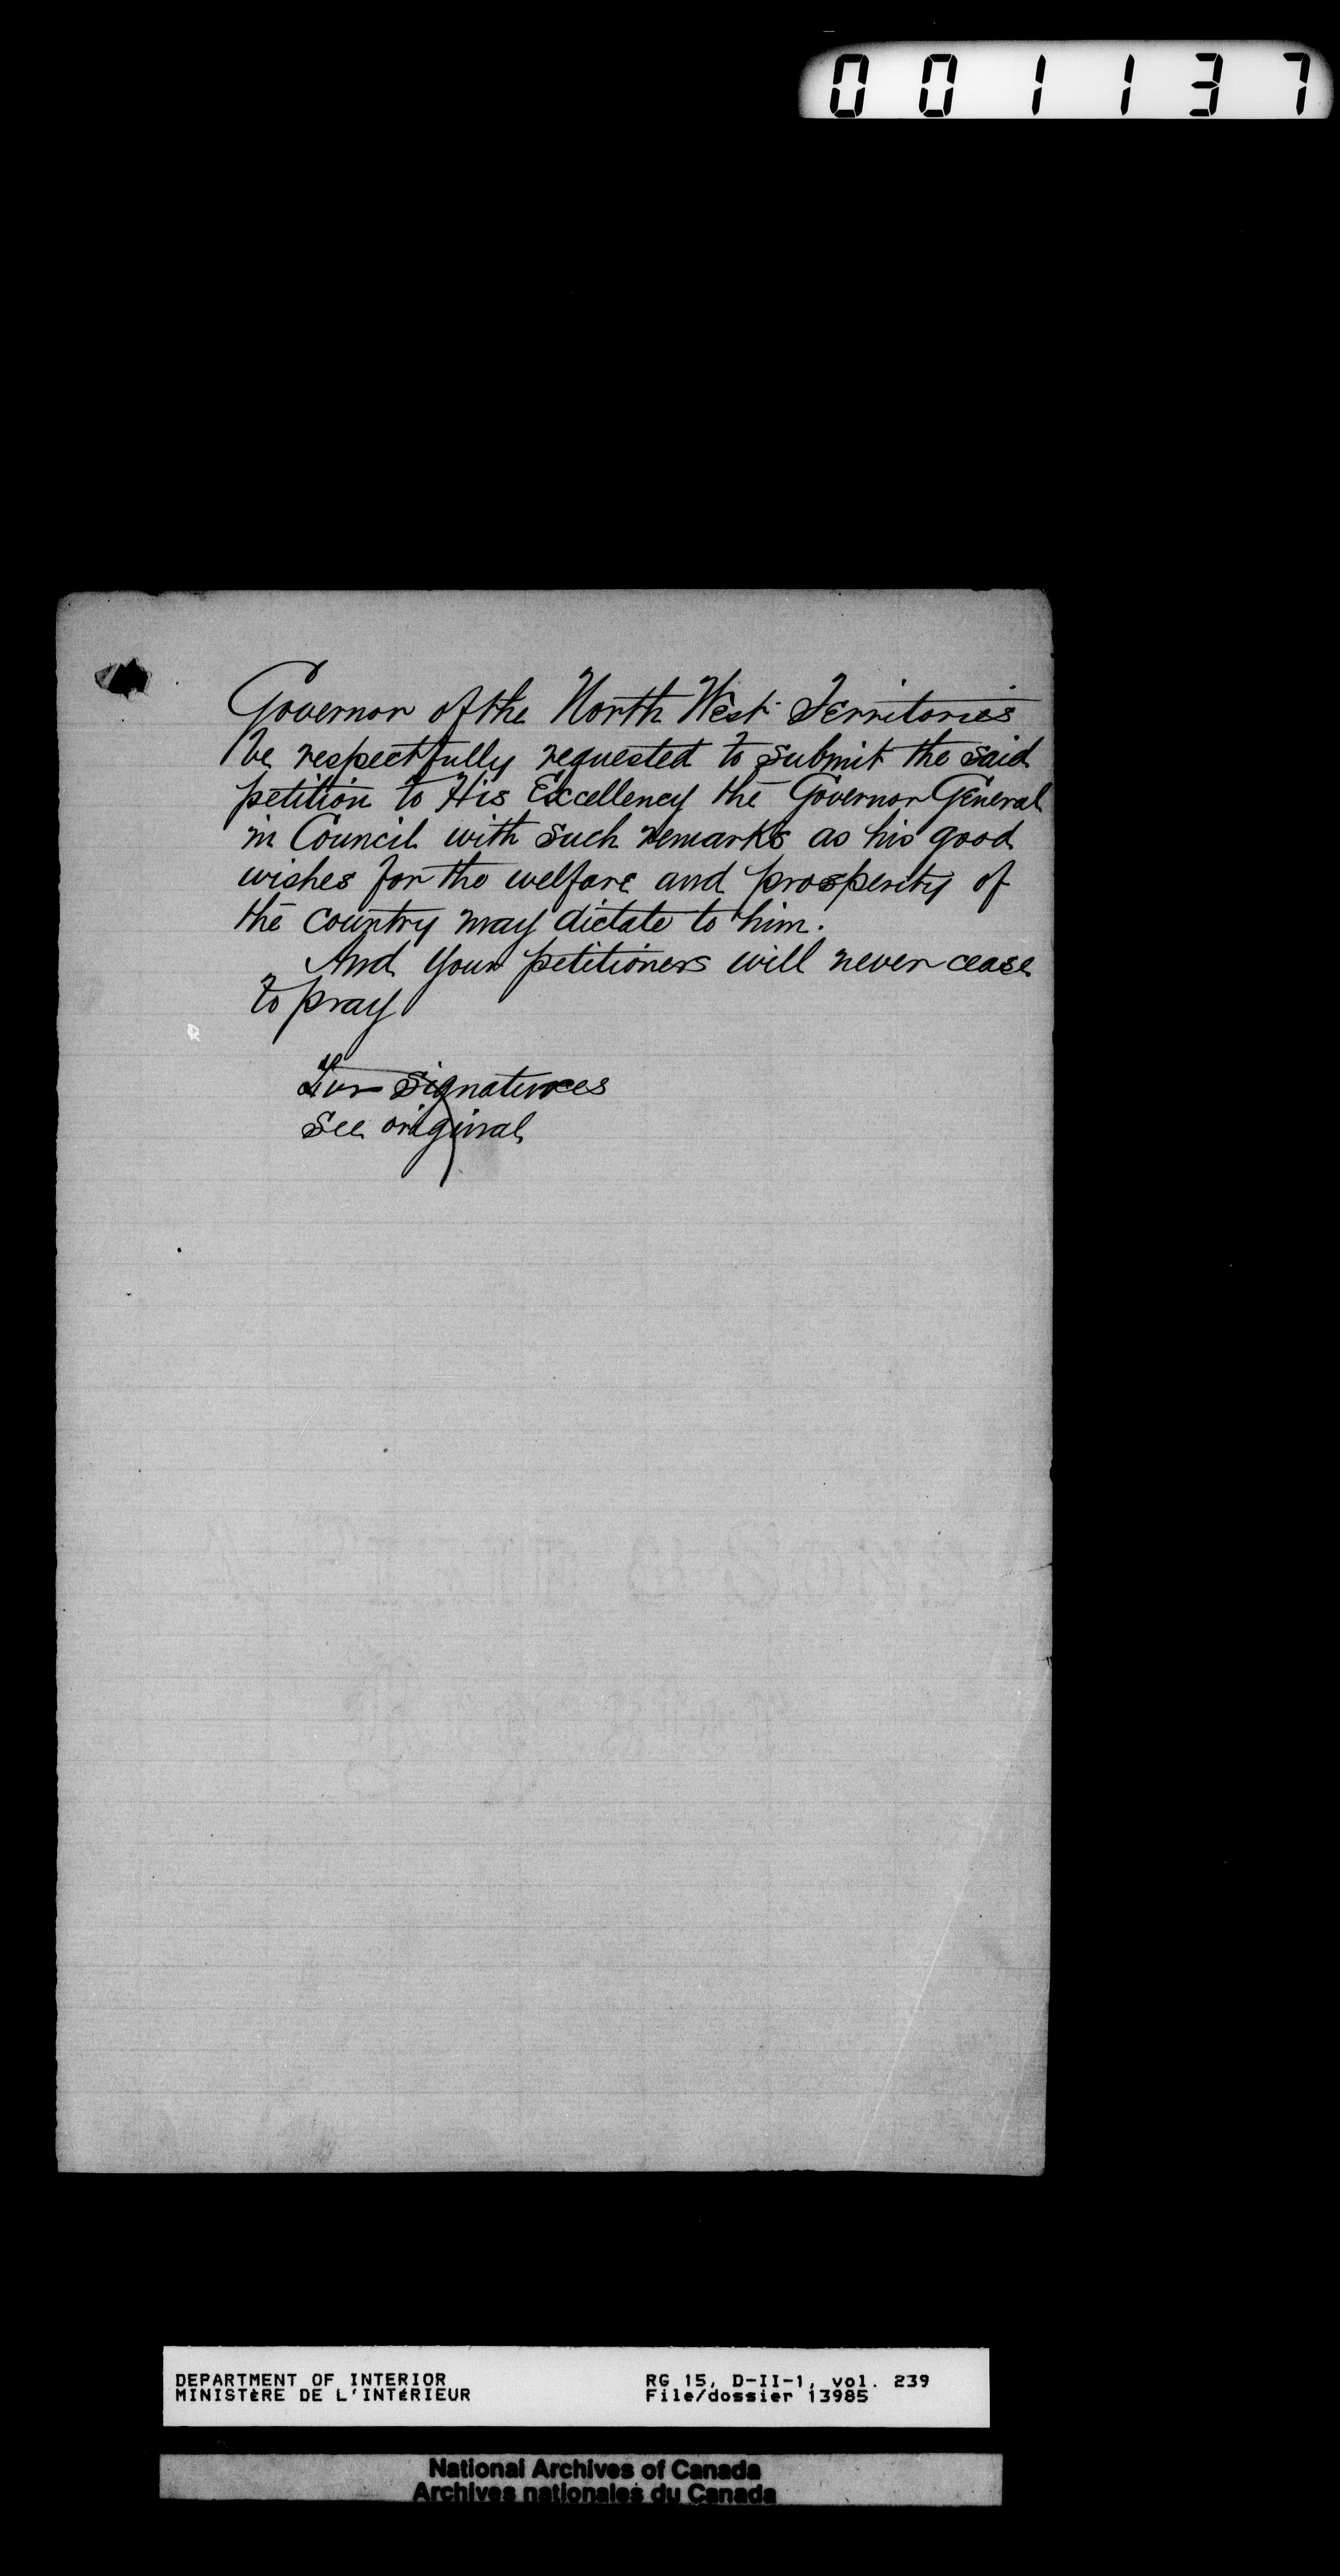 001137
Governor of the North West Territories
be respectfully requested to submit the said
petition to His Excellency the Governor General
in Council with such remarks as his good
wishes for the welfare and prosperity of
the country may dictate to him.
And your petitioners will never cease
to pray
For signatures
See original
DEPARTMENT OF INTERIOR
MINISTÈRE DE L'INTÉRIEUR
RG 15, D-II-1, vol. 239
File/dossier 13985
National Archives of Canada
Archives nationales du Canada